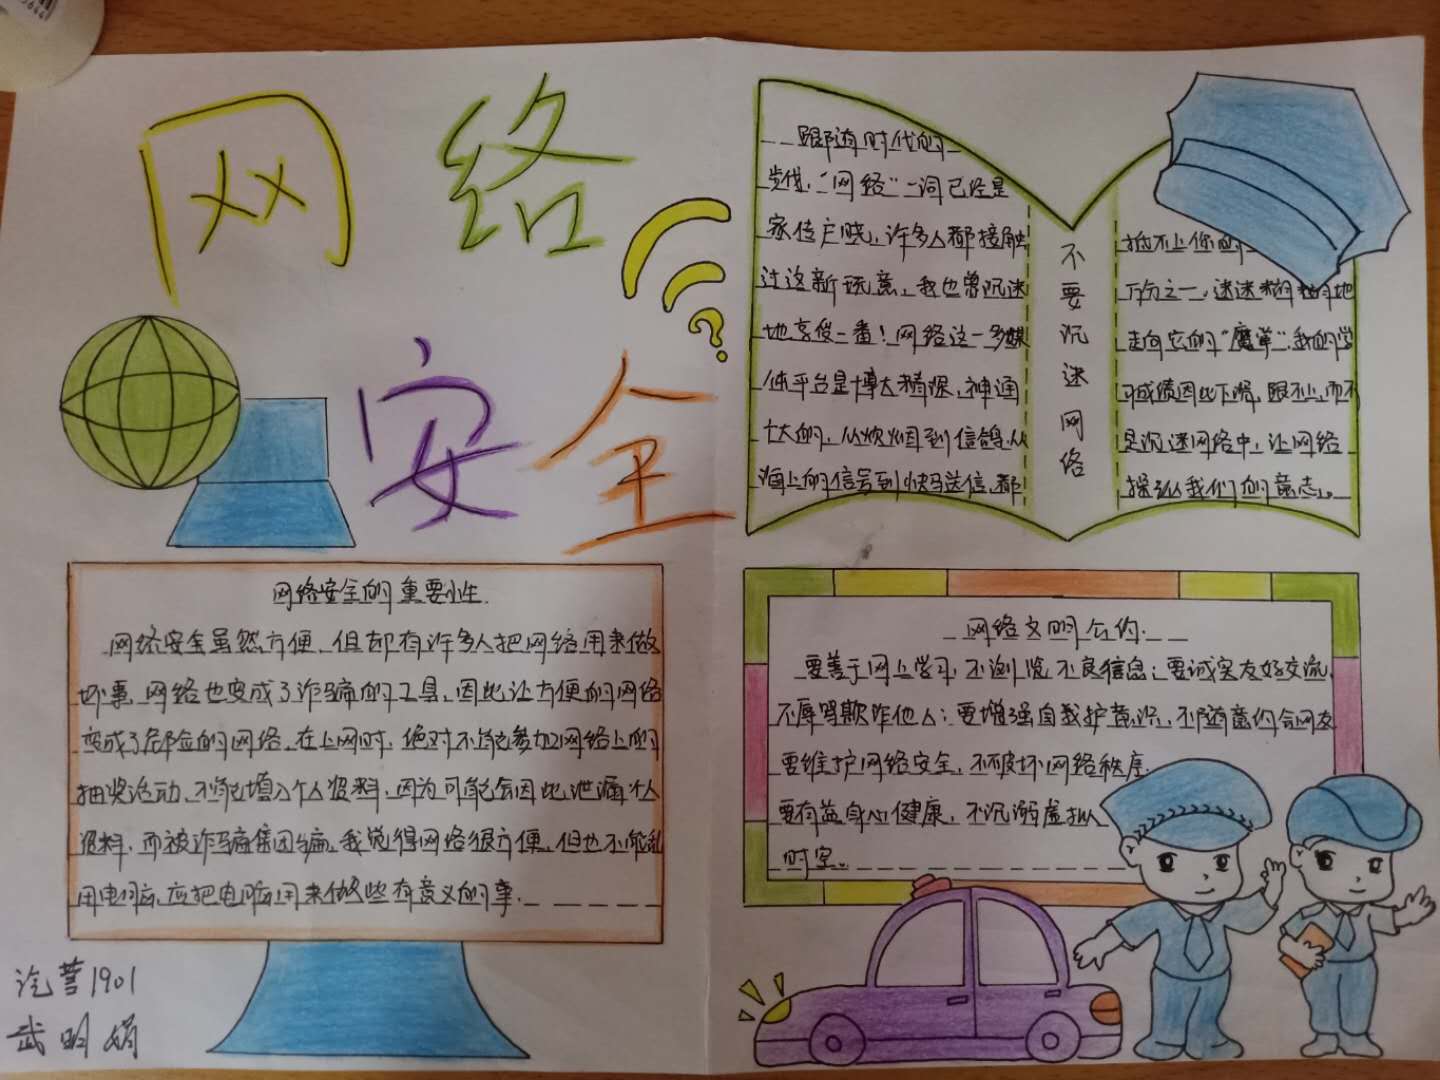 网络
安全
跟随时代的
步伐,“网络”一词已经是
家传户晓,许多人都接触
过这新玩意,我也曾沉迷
地享受一番!网络这一多媒
体平台是博大精深,神通
广大的,从烽烟到信鸽,从
海上的信号到快马送信,都
不要沉迷网络
抵不上你的
万分之一,迷迷糊糊地
走向它的“魔掌”,我的学
习成绩因此下滑,跟不上,而不
是沉迷网络中,让网络
操纵我们的意志。
网络安全的重要性
网络安全虽然方便,但却有许多人把网络用来做
坏事,网络也变成了诈骗的工具,因此让方便的网络
变成了危险的网络,在上网时,绝对不能参加网络上的
抽奖活动,不能填入个人资料,因为可能会因此泄漏个人
资料,而被诈骗集团骗,我觉得网络很方便,但也不能乱
用电脑,应把电脑用来做些有意义的事.
网络文明公约.
要善于网上学习,不浏览不良信息;要诚实友好交流,
不辱骂欺诈他人;要增强自我护意识,不随意约会网友
要维护网络安全,不破坏网络秩序;
要有益身心健康,不沉溺虚拟
时空。
汽营1901
武明娟